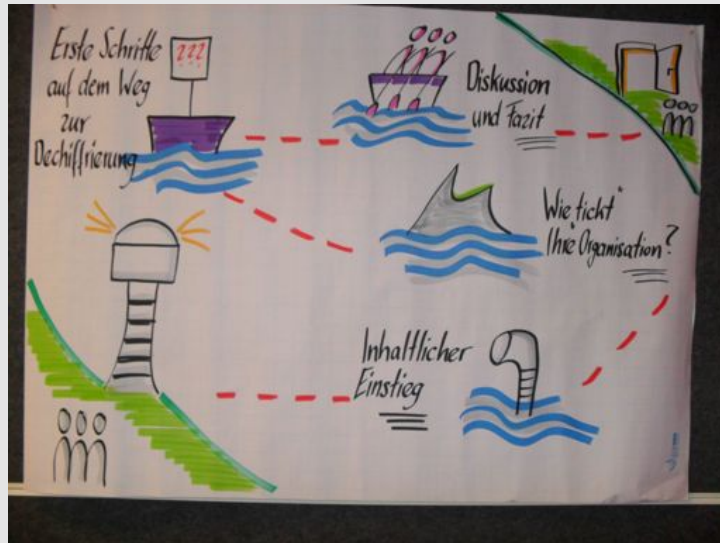 Erste Schritte
auf dem Weg
zur
Dechiffrierung
???
Diskussion
und Fazit
Wie „tickt“
Ihre Organisation?
Inhaltlicher
Einstieg